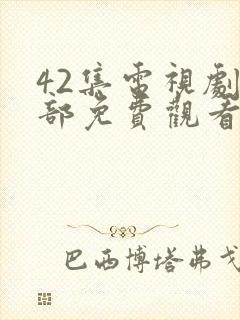 42集電視劇
部免費觀看
巴西博塔弗戈